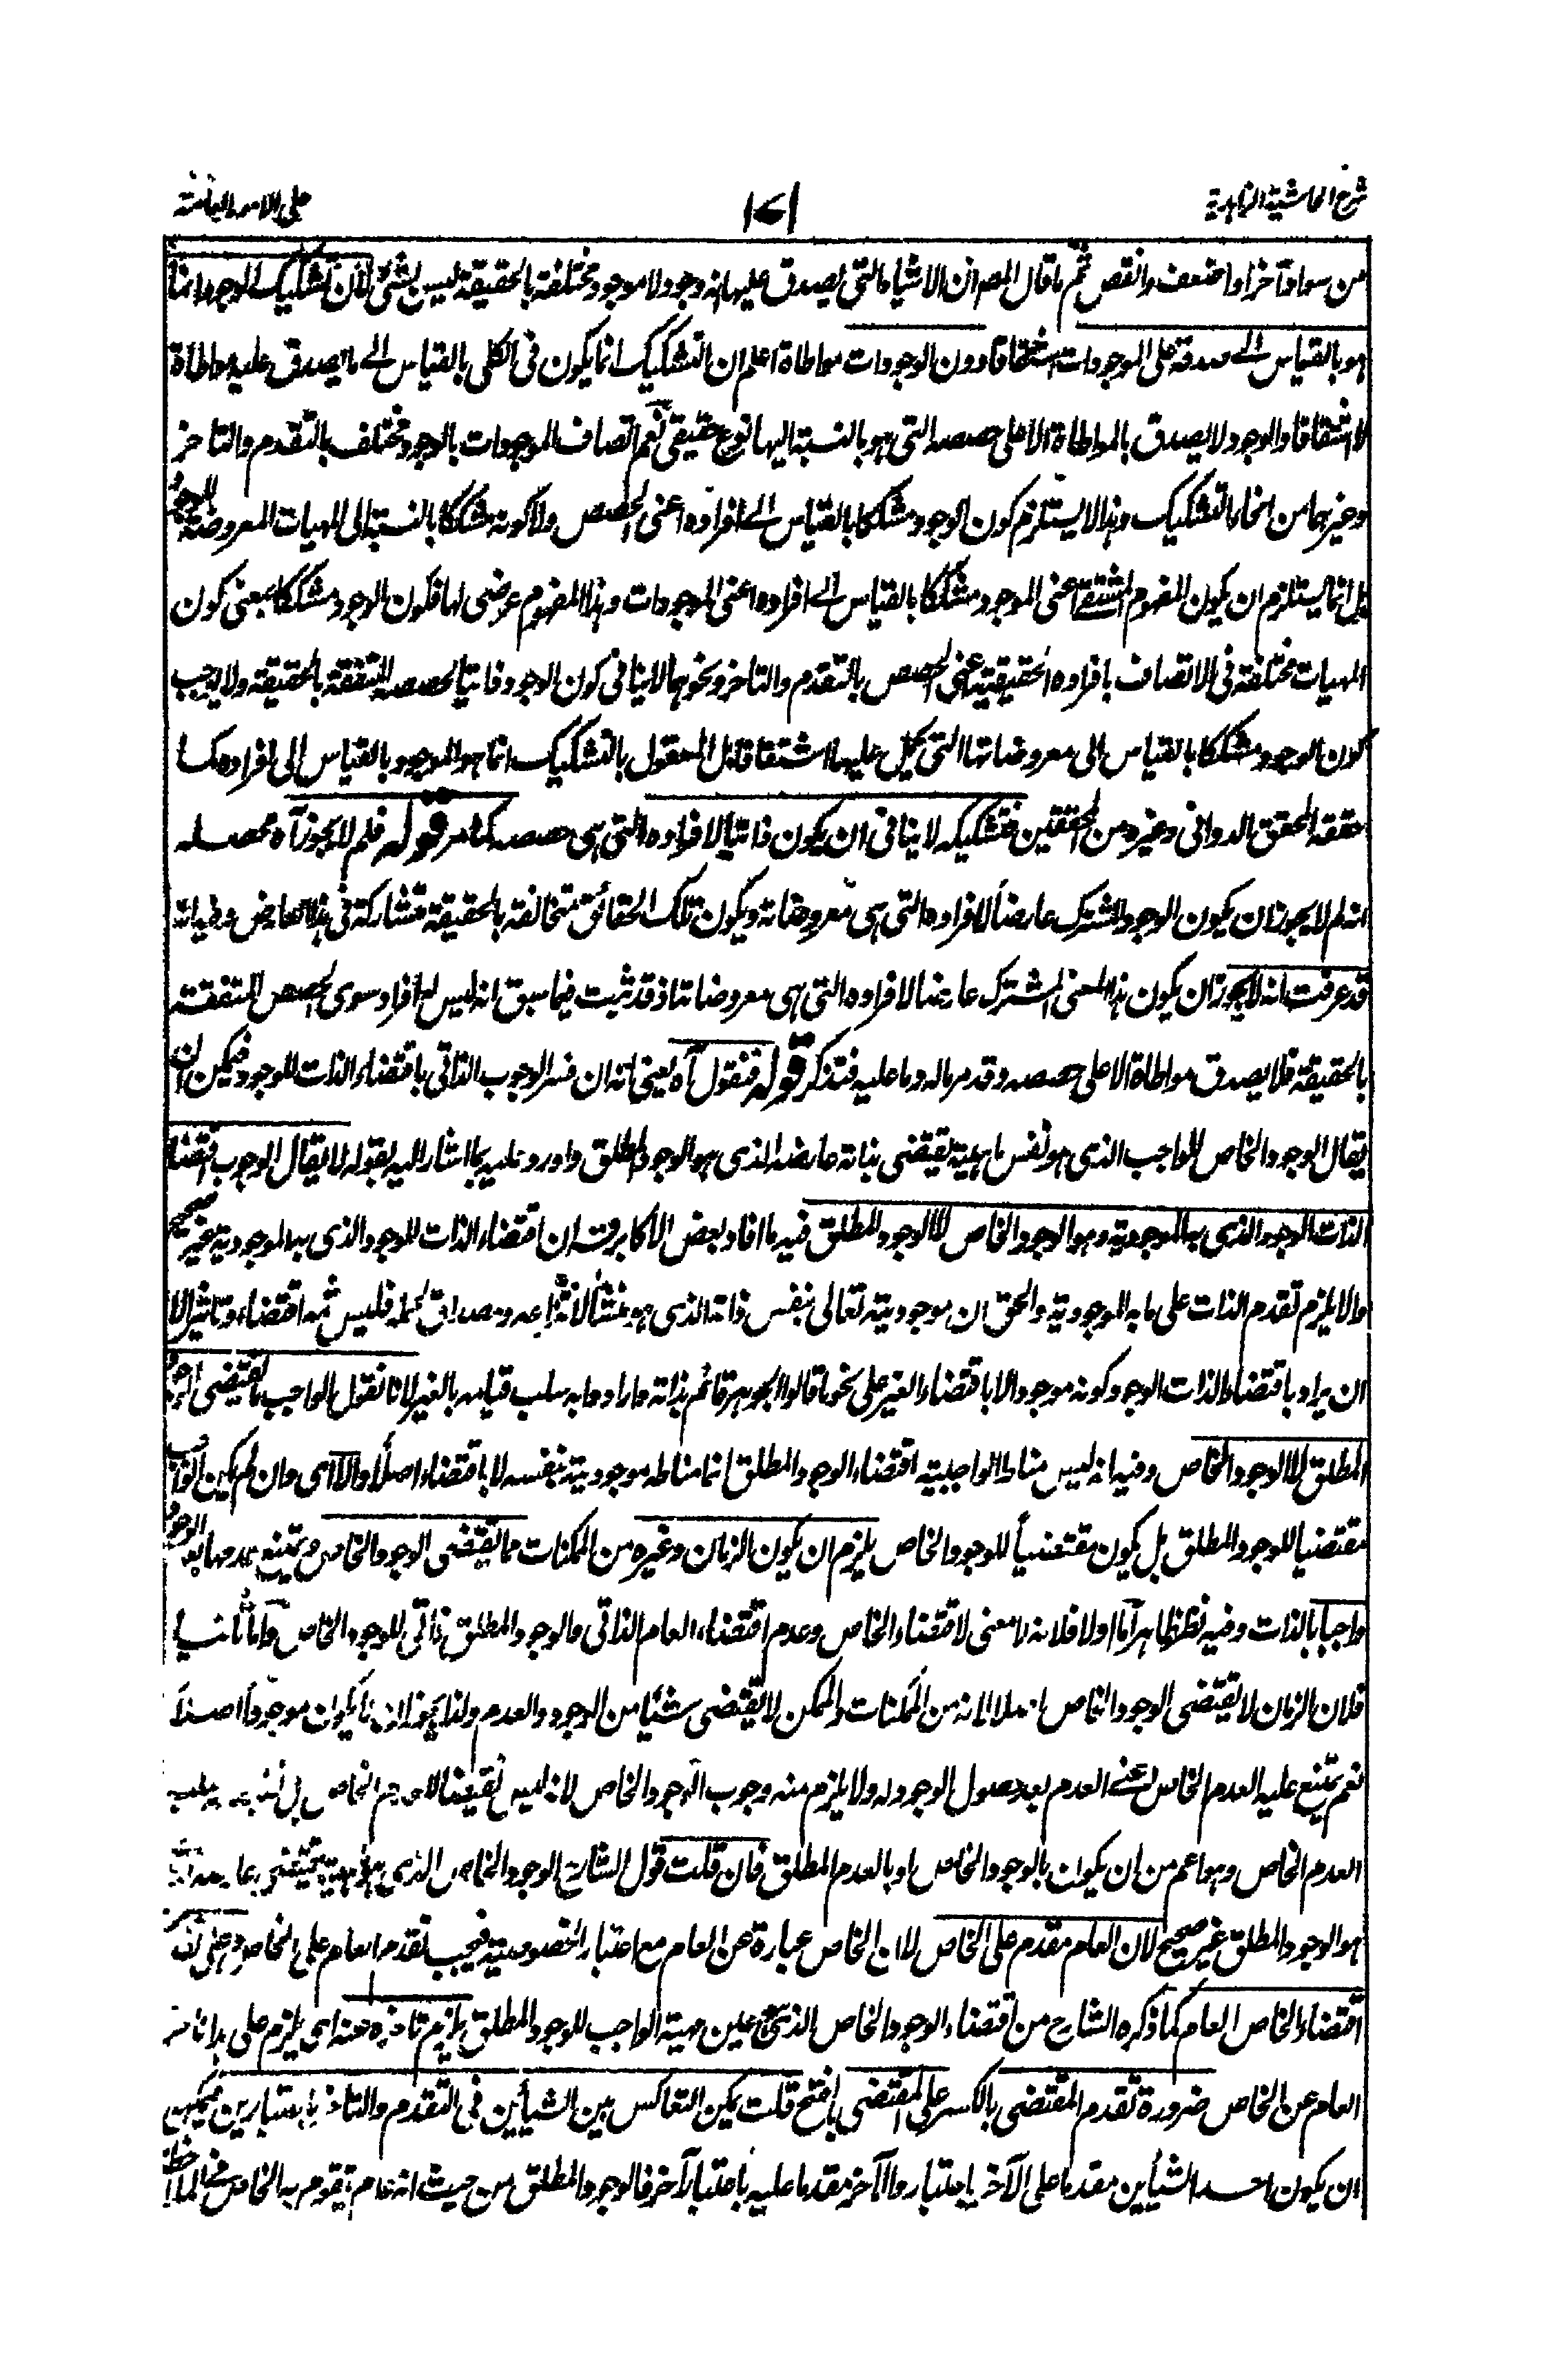 شرح الحاشية الزاهدية
١٤١
على الامور العامة
من سواه آخرا واضعف وانقص ثم ما قال المص ان الاشياء التى يصدق عليها انه وجود لا موجود مختلفة بالحقيقة ليس بشئ لان تشكيك الوجود انما
هو بالقياس الى صدقه على الموجودات اشتقاقا دون الوجودات مواطاة اعلم ان التشكيك انما يكون فى الكلى بالقياس الى ما يصدق عليه مواطاة
لا اشتقاقا والوجود لا يصدق بالمواطاة الا على حصصه التى هو بالنسبة اليها نوع حقيقى نعم اتصاف الموجودات بالوجود مختلف بالتقدم والتاخر
وغيرهما من انحاء التشكيك وهذا لا يستلزم كون الوجود مشككا بالقياس الى افراده اعنى الحصص ولا كونه مشككا بالنسبة الى المهيات المعروضة للوجود
بل انما يستلزم ان يكون المفهوم المشتق اعنى الموجود مشككا بالقياس الى افراده اعنى الموجودات وهذا المفهوم عرضى لها فكون الوجود مشككا بمعنى كون
المهيات مختلفة فى الاتصاف بافراده الحقيقية اعنى الحصص بالتقدم والتاخر ونحوهما لا ينافى كون الوجود ذاتيا لحصصه المتفقة بالحقيقة ولا يوجب
كون الوجود مشككا بالقياس الى معروضاتها التى يحمل عليها اشتقاقا بل المعقول بالتشكيك انما هو الموجود بالقياس الى افراده كما
حققه المحقق الدوانى وغيره من المحققين فتشكيكه لا ينافى ان يكون ذاتيا لافراده التى هى حصصه كما مر قوله فلم لا يجوز آه محصله
انه لم لا يجوز ان يكون الوجود المشترك عارضا لافراده التى هى معروضاته ويكون تلك الحقائق متخالفة بالحقيقة متشاركة فى هذا العارض وفيه انه
قد عرفت انه لا يجوز ان يكون هذا المعنى المشترك عارضا لافراده التى هى معروضاتنا اذ قد ثبت فيما سبق انه ليس له افراد سوى الحصص المتفقة
بالحقيقة فلا يصدق مواطاة الا على حصصه وقد مر ماله وما عليه فتذكر قوله فنقول آه يعنى انه ان فسر الوجوب الذاتى باقتضاء الذات للوجود فيمكن ان
يقال الوجود الخاص للواجب الذى هو نفس ماهيته يقتضى بذاته عارضه الذى هو الوجود المطلق واورد عليه بما اشار اليه بقوله لا يقال الوجوب اقتضاء
الذات الوجود الذى به الموجودية وهو الوجود الخاص لا الوجود المطلق فيه ما افاد بعض الاكابر قده ان اقتضاء الذات للوجود الذى به الموجودية غير صحيح
والا يلزم تقدم الذات على ما به الموجودية والحق ان موجوديته تعالى بنفس ذاته الذى هو منشأ لانتزاعه ومصداق لحمله فليس ثمه اقتضاء وتاثير الا
ان يراد باقتضاء الذات الوجود كونه موجودا لا باقتضاء الغير على نحو ما قالوا الجوهر قائم بذاته وارادوا به سلب قيامه بالغير لانا نقول الواجب ما يقتضى الوجود
المطلق لا الوجود الخاص وفيه انه ليس مناط الواجبية اقتضاء الوجود المطلق انما مناطه موجوديته بنفسه لا باقتضاء اصلا والا اى وان لم يكن الواجب
مقتضيا للوجود المطلق بل يكون مقتضيا للوجود الخاص يلزم ان يكون الزمان وغيره من الممكنات مما يقتضى الوجود الخاص ويمتنع عدمها بعد الوجود
واجبا بالذات وفيه نظر ظاهر اما اولا فلانه لا معنى لاقتضاء الخاص وعدم اقتضاء العام الذاتى والوجود المطلق ذاتى للوجود الخاص واما ثانيا
فلان الزمان لا يقتضى الوجود الخاص اصلا لانه من الممكنات والممكن لا يقتضى شئيا من الوجود والعدم ولذا يجوز ان لا يكون موجودا اصلا
نعم يمتنع عليه العدم الخاص يعنى العدم بعد حصول الوجود له ولا يلزم منه وجوب الوجود الخاص لانه ليس نقيضا للعدم الخاص بل نقيضه سلب
العدم الخاص وهو اعم من ان يكون بالوجود الخاص او بالعدم المطلق فان قلت قول الشارح الوجود الخاص الذى هو مهيته يقتضى عارضه الذى
هو الوجود المطلق غير صحيح لان العام مقدم على الخاص لان الخاص عبارة عن العام مع اعتبار الخصوصية فيجب تقدم العام على الخاص وعلى تقدير
اقتضاء الخاص العام كما ذكره الشارح من اقتضاء الوجود الخاص الذى هو عين مهية الواجب للوجود المطلق يلزم تاخره عنه اى يلزم على هذا تاخر
العام عن الخاص ضرورة تقدم المقتضى بالكسر على المقتضى بالفتح قلت يمكن التعاكس بين الشيأين فى التقدم والتاخر باعتبارين فيمكن
ان يكون احد الشيأين مقدما على الآخر باعتبار والآخر مقدما عليه باعتبار آخر فالوجود المطلق من حيث انه عام يتقوم به الخاص فى الملاحظة